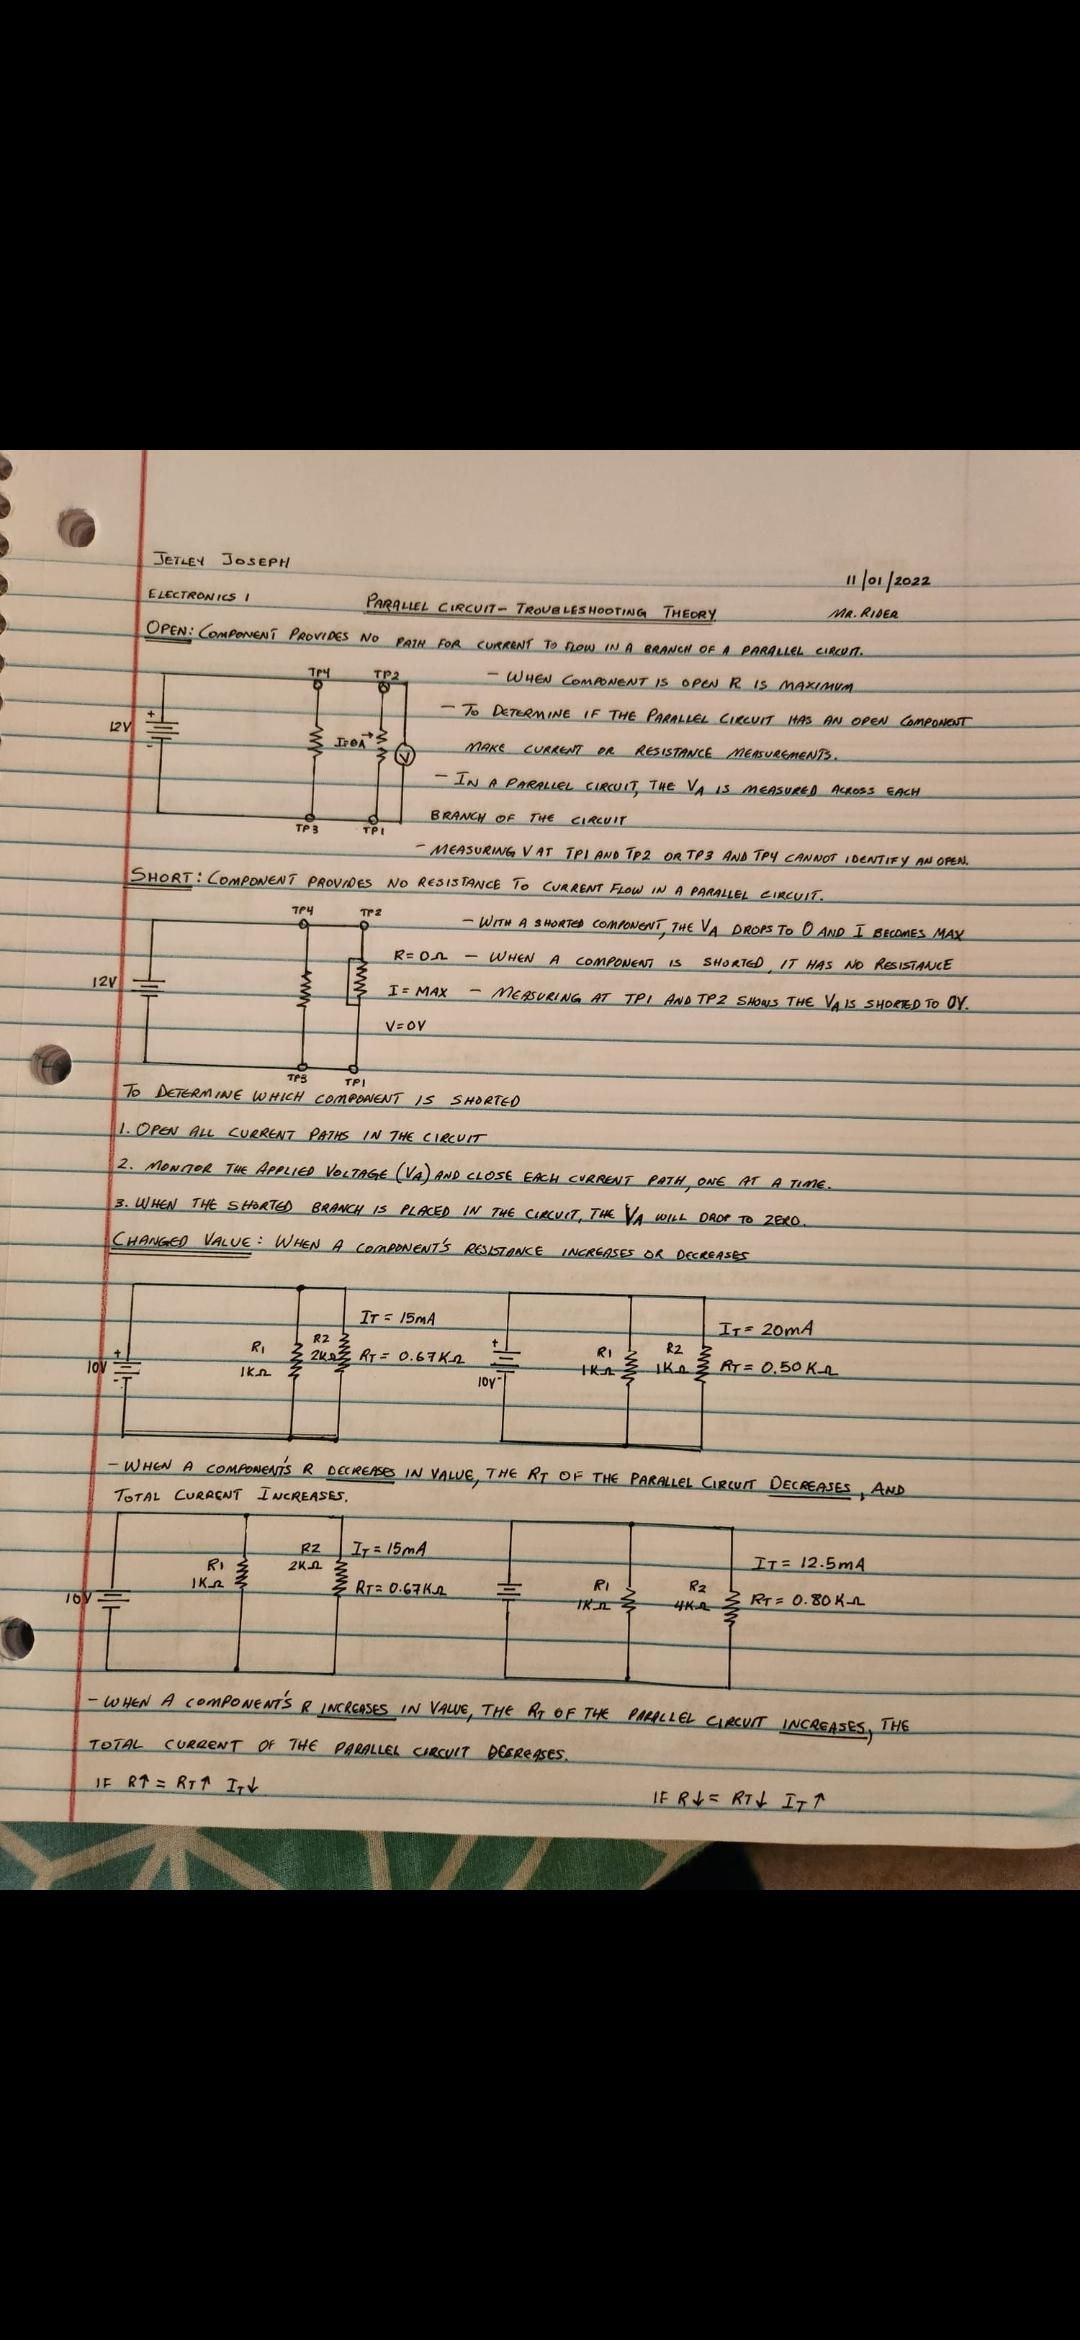 JETLEY JOSEPH
11/01/2022
ELECTRONICS 1
PARALLEL CIRCUIT - TROUBLESHOOTING THEORY
MR. RIDER
OPEN: COMPONENT PROVIDES NO PATH FOR CURRENT TO FLOW IN A BRANCH OF A PARALLEL CIRCUIT.
TP4 TP2
- WHEN COMPONENT IS OPEN R IS MAXIMUM
12V + -
I=0A →
V
- TO DETERMINE IF THE PARALLEL CIRCUIT HAS AN OPEN COMPONENT
MAKE CURRENT OR RESISTANCE MEASUREMENTS.
- IN A PARALLEL CIRCUIT, THE VA IS MEASURED ACROSS EACH
BRANCH OF THE CIRCUIT
TP3 TP1
- MEASURING V AT TP1 AND TP2 OR TP3 AND TP4 CANNOT IDENTIFY AN OPEN.
SHORT: COMPONENT PROVIDES NO RESISTANCE TO CURRENT FLOW IN A PARALLEL CIRCUIT.
TP4 TP2
- WITH A SHORTED COMPONENT, THE VA DROPS TO 0 AND I BECOMES MAX
R=0Ω - WHEN A COMPONENT IS SHORTED, IT HAS NO RESISTANCE
12V
I=MAX - MEASURING AT TP1 AND TP2 SHOWS THE VA IS SHORTED TO 0V.
V=0V
TP3 TP1
TO DETERMINE WHICH COMPONENT IS SHORTED
1. OPEN ALL CURRENT PATHS IN THE CIRCUIT
2. MONITOR THE APPLIED VOLTAGE (VA) AND CLOSE EACH CURRENT PATH, ONE AT A TIME.
3. WHEN THE SHORTED BRANCH IS PLACED IN THE CIRCUIT, THE VA WILL DROP TO ZERO.
CHANGED VALUE: WHEN A COMPONENT'S RESISTANCE INCREASES OR DECREASES
10V + -
R1
1KΩ
R2
2KΩ
IT = 15mA
RT = 0.67KΩ
+ -
10V
R1
1KΩ
R2
1KΩ
IT = 20mA
RT = 0.50KΩ
- WHEN A COMPONENT'S R DECREASES IN VALUE, THE RT OF THE PARALLEL CIRCUIT DECREASES, AND
TOTAL CURRENT INCREASES.
10V
R1
1KΩ
R2
2KΩ
IT = 15mA
RT = 0.67KΩ
R1
1KΩ
R2
4KΩ
IT = 12.5mA
RT = 0.80KΩ
- WHEN A COMPONENT'S R INCREASES IN VALUE, THE RT OF THE PARALLEL CIRCUIT INCREASES, THE
TOTAL CURRENT OF THE PARALLEL CIRCUIT DECREASES.
IF R↑ = RT↑ IT↓
IF R↓ = RT↓ IT↑